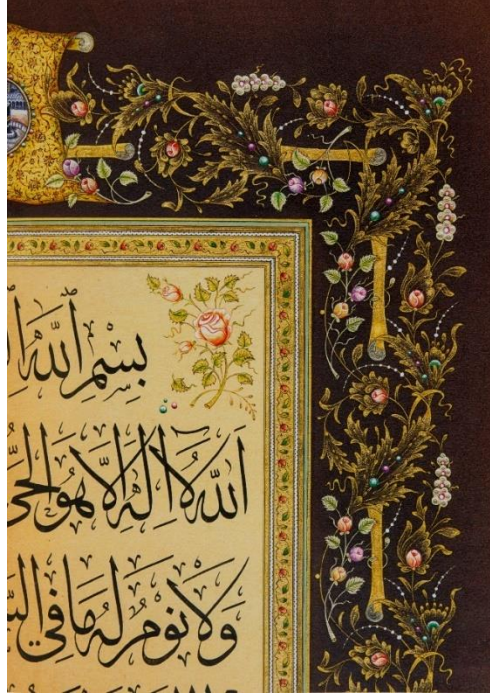 بِسْمِ اللّٰهِ
اَللّٰهُ لَآ اِلٰهَ اِلَّا هُوَ الْحَيُّ
وَلَا نَوْمٌ لَهُ مَا فِي